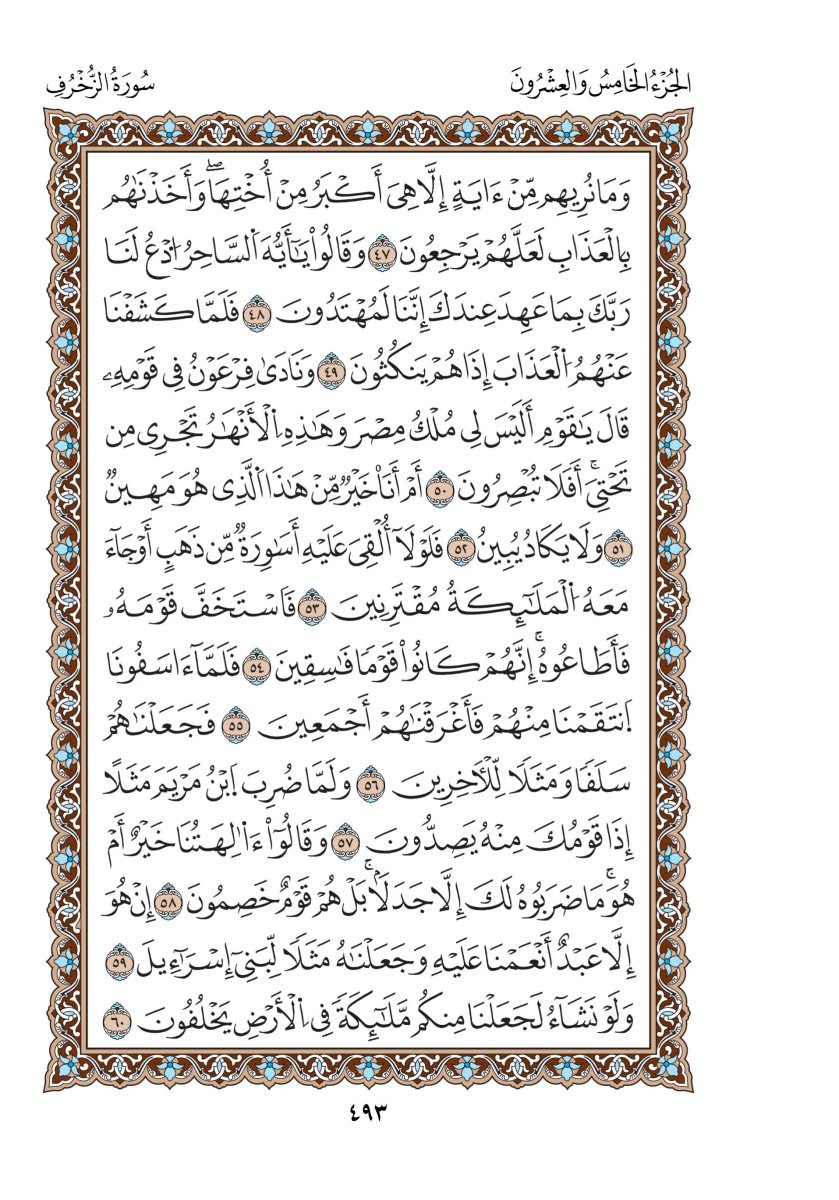 الجُزْءُ الخَامِسُ وَالعِشْرُونَ
سُورَةُ الزُّخْرُفِ
وَمَا نُرِيهِم مِّنْ ءَايَةٍ إِلَّا هِيَ أَكْبَرُ مِنْ أُخْتِهَاۖ وَأَخَذْنَٰهُم
بِالْعَذَابِ لَعَلَّهُمْ يَرْجِعُونَ ٤٧ وَقَالُواْ يَٰٓأَيُّهَ اَلسَّاحِرُ اُدْعُ لَنَا
رَبَّكَ بِمَا عَهِدَ عِندَكَ إِنَّنَا لَمُهْتَدُونَ ٤٨ فَلَمَّا كَشَفْنَا
عَنْهُمُ اُلْعَذَابَ إِذَا هُمْ يَنكُثُونَ ٤٩ وَنَادَىٰ فِرْعَوْنُ فِي قَوْمِهِۦ
قَالَ يَٰقَوْمِ أَلَيْسَ لِي مُلْكُ مِصْرَ وَهَٰذِهِ اِلْأَنْهَٰرُ تَجْرِي مِن
تَحْتِيَۚ أَفَلَا تُبْصِرُونَ ٥٠ أَمْ أَنَا۠ خَيْرٌ مِّنْ هَٰذَا اَلَّذِي هُوَ مَهِينٌ
٥١ وَلَا يَكَادُ يُبِينُ ٥٢ فَلَوْلَآ أُلْقِيَ عَلَيْهِ أَسَٰوِرَةٌ مِّن ذَهَبٍ أَوْ جَآءَ
مَعَهُ اُلْمَلَٰٓئِكَةُ مُقْتَرِنِينَ ٥٣ فَاسْتَخَفَّ قَوْمَهُۥ
فَأَطَاعُوهُۚ إِنَّهُمْ كَانُواْ قَوْمًا فَٰسِقِينَ ٥٤ فَلَمَّآ ءَاسَفُونَا
اَنتَقَمْنَا مِنْهُمْ فَأَغْرَقْنَٰهُمْ أَجْمَعِينَ ٥٥ فَجَعَلْنَٰهُمْ
سَلَفًا وَمَثَلًا لِّلْأٓخِرِينَ ٥٦ وَلَمَّا ضُرِبَ اَبْنُ مَرْيَمَ مَثَلًا
إِذَا قَوْمُكَ مِنْهُ يَصِدُّونَ ٥٧ وَقَالُوٓاْ ءَاٰلِهَتُنَا خَيْرٌ أَمْ
هُوَۚ مَا ضَرَبُوهُ لَكَ إِلَّا جَدَلًاۢۚ بَلْ هُمْ قَوْمٌ خَصِمُونَ ٥٨ إِنْ هُوَ
إِلَّا عَبْدٌ أَنْعَمْنَا عَلَيْهِ وَجَعَلْنَٰهُ مَثَلًا لِّبَنِيٓ إِسْرَٰٓءِيلَ ٥٩
وَلَوْ نَشَآءُ لَجَعَلْنَا مِنكُم مَّلَٰٓئِكَةً فِي اِلْأَرْضِ يَخْلُفُونَ ٦٠
٤٩٣